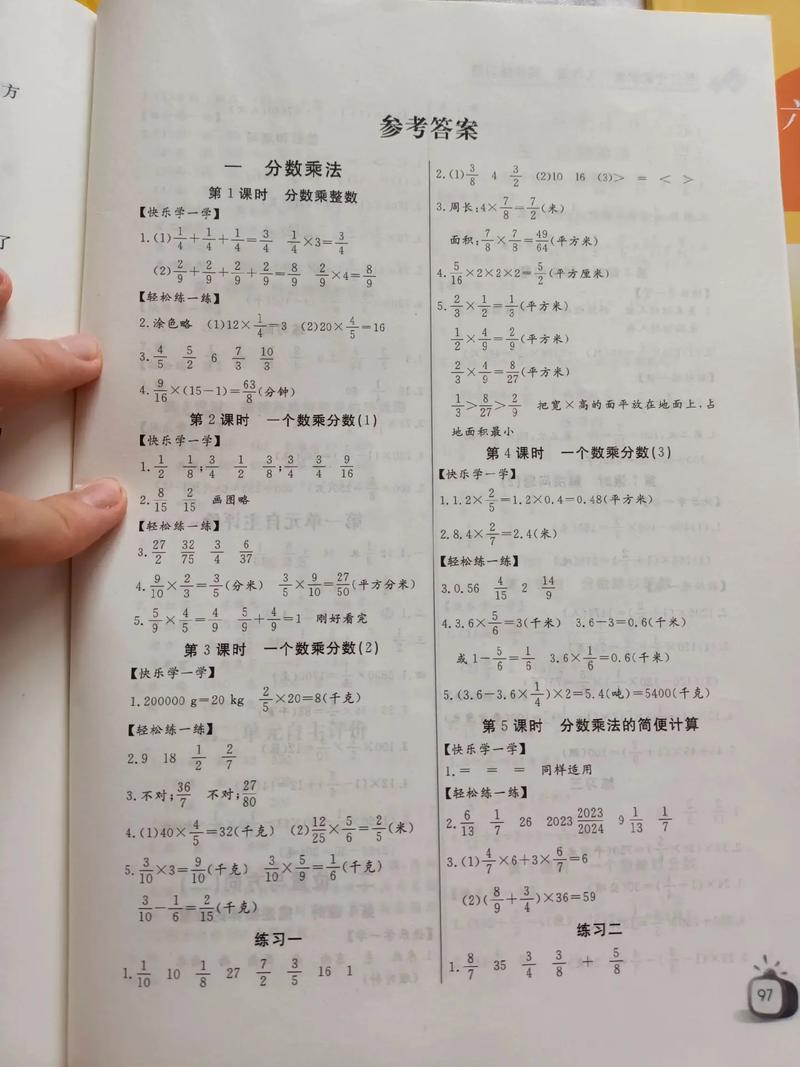 方
了
六
参考答案
一 分数乘法
第1课时 分数乘整数
【快乐学一学】
1.(1)1/4+1/4+1/4=3/4 1/4×3=3/4
(2)2/9+2/9+2/9+2/9=8/9 2/9×4=8/9
【轻松练一练】
2.涂色略 (1)12×1/4=3 (2)20×4/5=16
3.4/5 5/2 6 7/3 10/3
4.9/16×(15-1)=63/8(分钟)
第2课时 一个数乘分数(1)
【快乐学一学】
1.1/2 1/8;3/4 1/2 3/8;3/4 3/4 9/16
2.8/15 2/15 画图略
【轻松练一练】
3.27/2 32/75 3/4 6/37
4.9/10×2/3=3/5(分米) 3/5×9/10=27/50(平方分米)
5.5/9×4/5=4/9 5/9+4/9=1 刚好看完
第3课时 一个数乘分数(2)
【快乐学一学】
1.200000 g=20 kg 2/5×20=8(千克)
【轻松练一练】
2.9 18 1/2 2/7
3.不对;36/7 不对;27/80
4.(1)40×4/5=32(千克) (2)12/25×5/6=2/5(米)
5.3/10×3=9/10(千克) 3/10×5/9=1/6(千克)
3/10-1/6=2/15(千克)
练习一
1.1/10 10 1/8 27 7/2 3/5 16 1
2.(1)3/8 4 3/2 (2)10 16 (3)> = < >
3.周长:4×7/8=7/2(米)
面积:7/8×7/8=49/64(平方米)
4.5/16×2×2×2=5/2(平方厘米)
5.2/3×1/2=1/3(平方米)
1/2×4/9=2/9(平方米)
2/3×4/9=8/27(平方米)
1/3>8/27>2/9 把宽×高的面平放在地面上,占
地面积最小
第4课时 一个数乘分数(3)
【快乐学一学】
1.1.2×2/5=1.2×0.4=0.48(平方米)
2.8.4×2/7=2.4(米)
【轻松练一练】
3.0.56 4/15 2 14/9
4.3.6×5/6=3(千米) 3.6-3=0.6(千米)
或1-5/6=1/6 3.6×1/6=0.6(千米)
5.(3.6-3.6×1/4)×2=5.4(吨)=5400(千克)
第5课时 分数乘法的简便计算
【快乐学一学】
1.= = = 同样适用
【轻松练一练】
2.6/13 1/7 26 2023 2023/2024 9 1/13 1/7
3.(1)4/7×6+3×6/7=6
(2)(8/9+3/4)×36=59
练习二
1.8/7 35 3/4 3/8 + 5/8
97